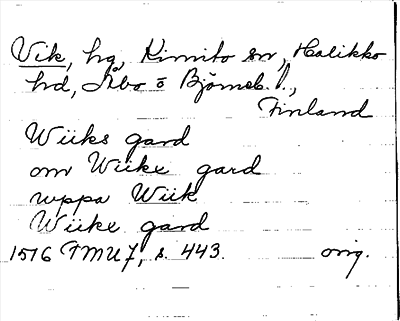 Vik, hg, Kimito sn, Halikko
hd, Åbo o Björneb. l.,
Finland
Wiiks gard
om Wiike gard
uppa Wiik
Wiike gard
1516 TMU 7, s. 443. orig.